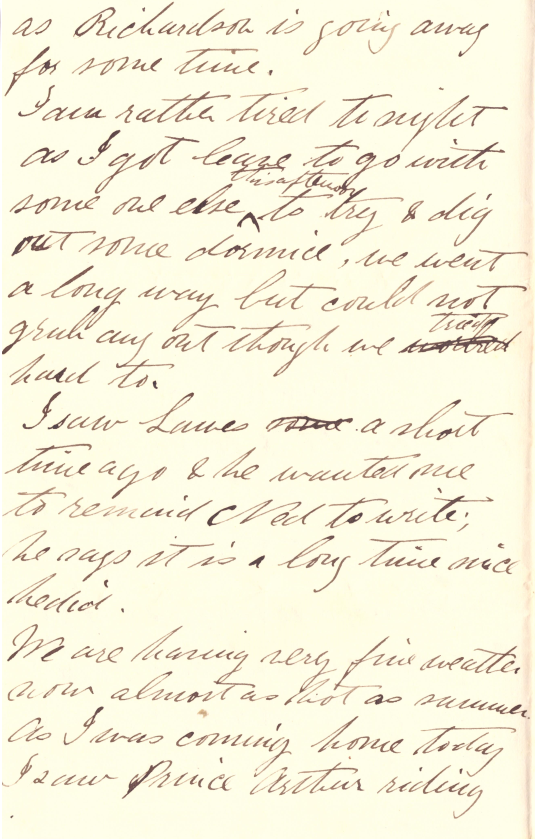 as Richardson is going away
for some time.
I am rather tired to night
as I got leave to go with
this afternoon
some one else ^ to try & dig
out some dormice, we went
a long way but could not
tried
grub any out though we worked
hard to.
I saw Lawes some a short
time ago & he wanted me
to remind Ned to write;
he says it is a long time since
he did.
We are having very fine weather
now almost as hot as summer.
As I was coming home today
I saw Prince Arthur riding